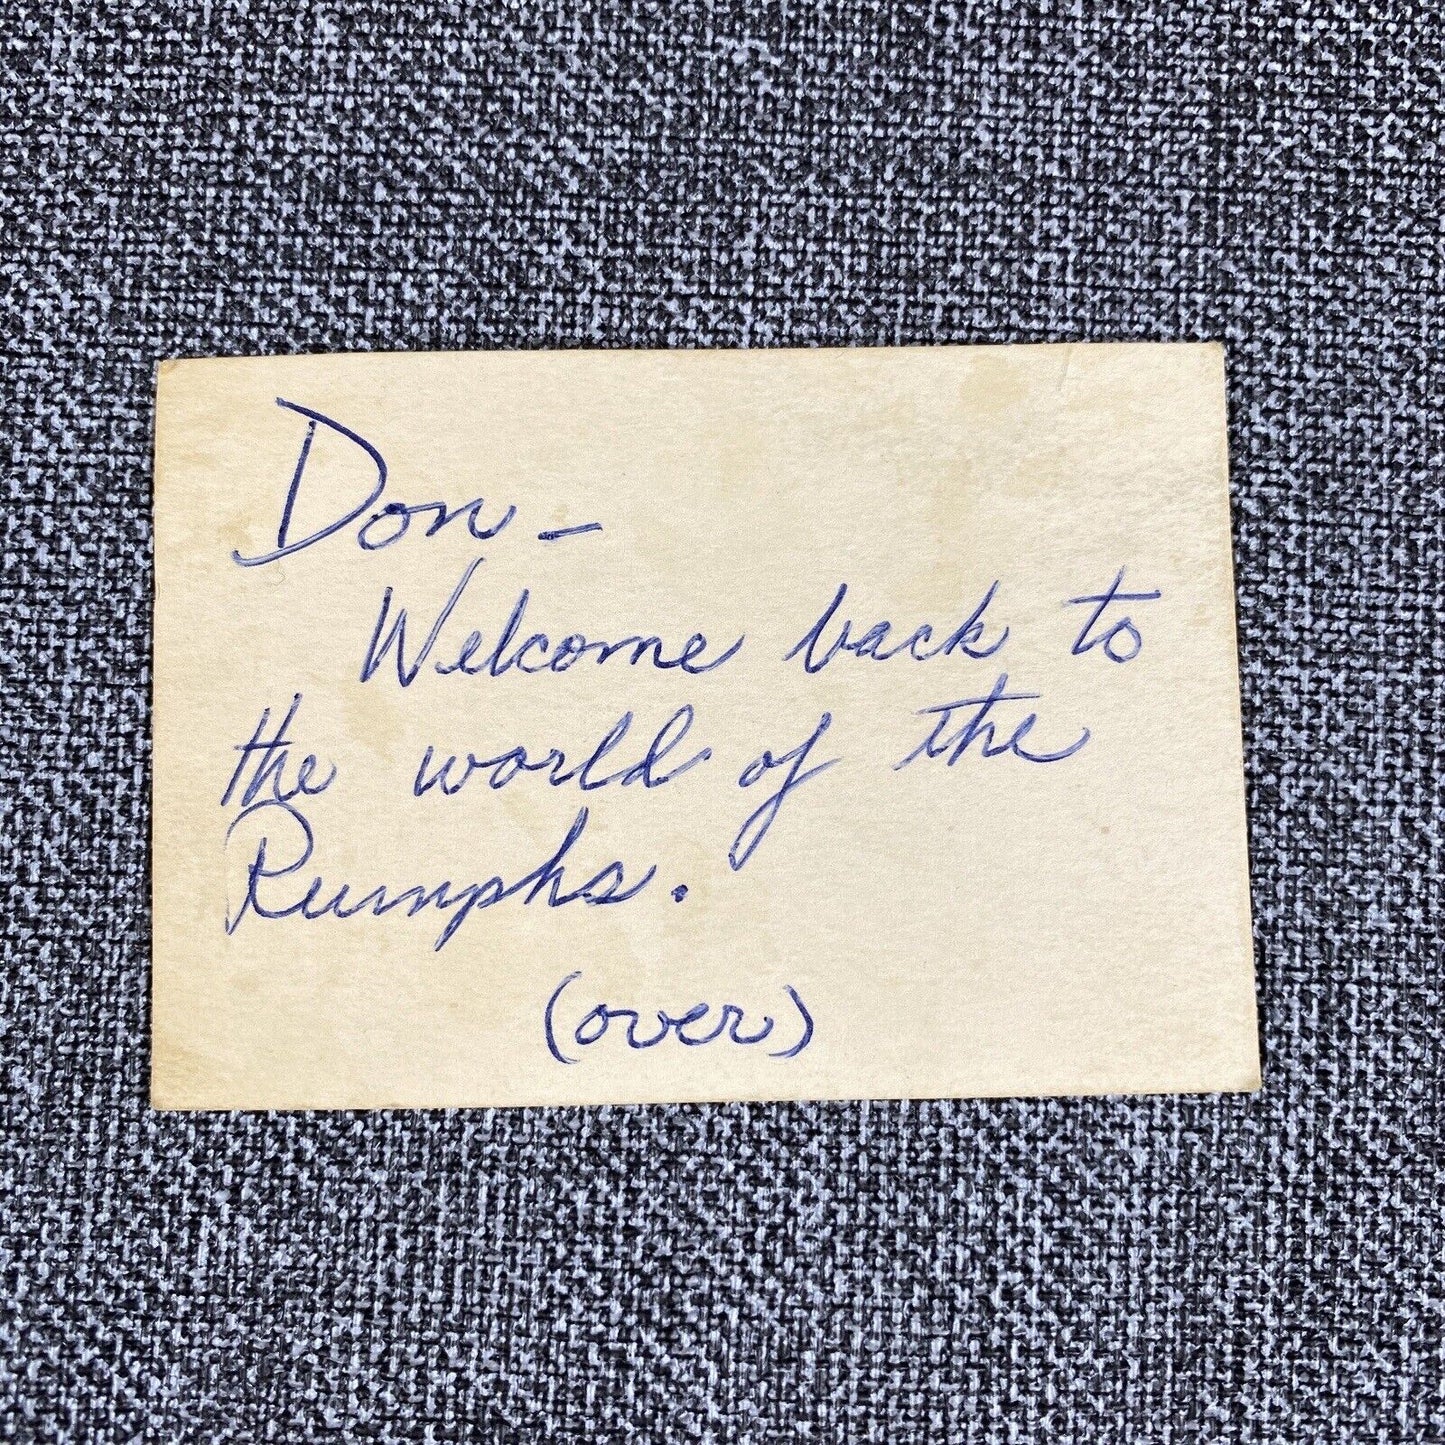 Don -
Welcome back to
the world of the
Rumphs.
(over)